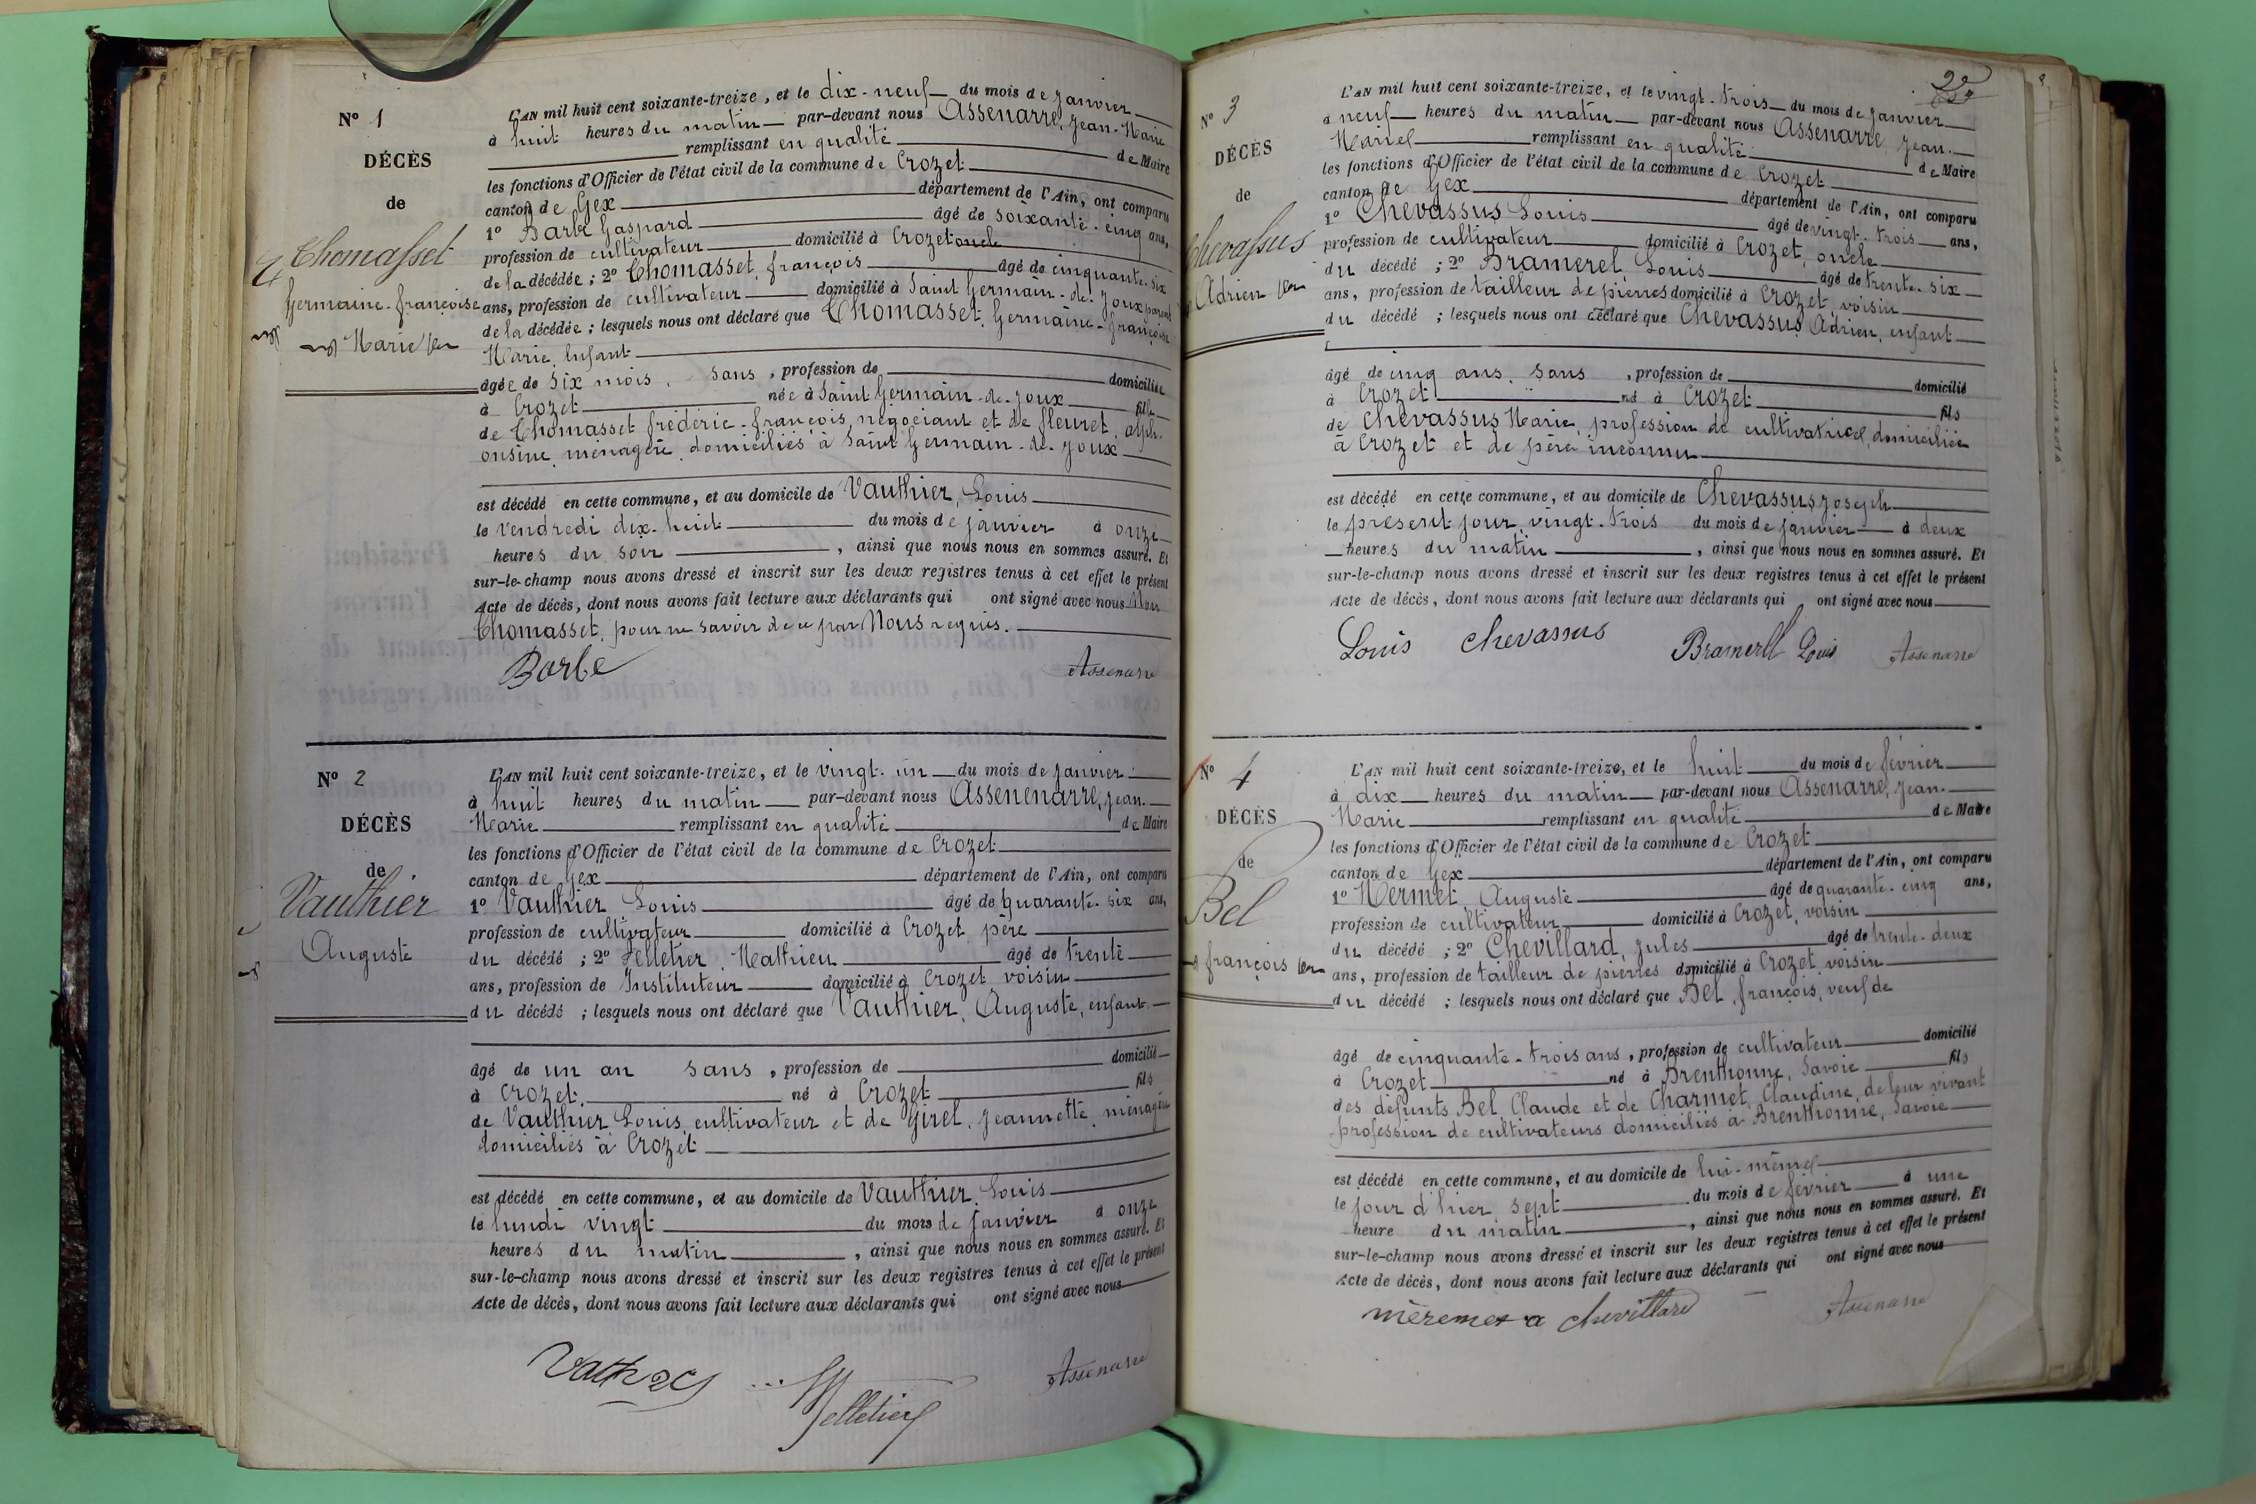 No 1
DÉCÈS
de
Thomasset
Germaine-françoise
Marie
L'AN mil huit cent soixante-treize, et le dix-neuf du mois de janvier
à huit heures du matin par-devant nous Assenarre, Jean-Marie
remplissant en qualité de Maire
les fonctions d'Officier de l'état civil de la commune de Crozet
canton de Gex département de l'Ain, ont comparu
1o Barbe Gaspard âgé de soixante-cinq ans,
profession de cultivateur domicilié à Crozet oncle
de la décédée ; 2o Thomasset, françois âgé de cinquante-six
ans, profession de cultivateur domicilié à Saint Germain-de-Joux parent
de la décédée ; lesquels nous ont déclaré que Thomasset, Germaine-françoise
Marie, enfant
âgée de six mois, sans, profession de domiciliée
à Crozet née à Saint Germain-de-Joux fille
de Thomasset frédéric-françois, négociant et de fleuret, alph-
onsine, ménagère, domiciliés à Saint Germain-de-Joux
est décédé en cette commune, et au domicile de Vauthier, Louis
le vendredi dix-huit du mois de janvier à onze
heures du soir, ainsi que nous nous en sommes assuré. Et
sur-le-champ nous avons dressé et inscrit sur les deux registres tenus à cet effet le présent
Acte de décès, dont nous avons fait lecture aux déclarants qui ont signé avec nous
Thomasset, pour ne savoir de ce par Nous requis.
Barbe Assenarre
No 2
DÉCÈS
de
Vauthier
Auguste
L'AN mil huit cent soixante-treize, et le vingt-un du mois de janvier
à huit heures du matin par-devant nous Assenenarre, Jean-
Marie remplissant en qualité de Maire
les fonctions d'Officier de l'état civil de la commune de Crozet
canton de Gex département de l'Ain, ont comparu
1o Vauthier Louis âgé de quarante-six ans,
profession de cultivateur domicilié à Crozet, père
du décédé ; 2o Pelletier, Mathieu âgé de trente
ans, profession de Instituteur domicilié à Crozet voisin
du décédé ; lesquels nous ont déclaré que Vauthier, Auguste, enfant
âgé de un an sans, profession de domicilié
à Crozet, né à Crozet fils
de Vauthier Louis, cultivateur et de Girel, Jeannette, ménagère
domiciliés à Crozet
est décédé en cette commune, et au domicile de Vauthier, Louis
le lundi vingt du mois de janvier à onze
heures du matin, ainsi que nous nous en sommes assuré. Et
sur-le-champ nous avons dressé et inscrit sur les deux registres tenus à cet effet le présent
Acte de décès, dont nous avons fait lecture aux déclarants qui ont signé avec nous
Pelletier Assenarre
22
No 3
DÉCÈS
de
Chevassus
Adrien
L'AN mil huit cent soixante-treize, et le vingt-trois du mois de janvier
à neuf heures du matin par-devant nous Assenarre, Jean-
Marie remplissant en qualité de Maire
les fonctions d'Officier de l'état civil de la commune de Crozet
canton de Gex département de l'Ain, ont comparu
1o Chevassus Louis âgé de vingt-trois ans,
profession de cultivateur domicilié à Crozet, oncle
du décédé ; 2o Bramerel, Louis âgé de trente-six
ans, profession de tailleur de pierres domicilié à Crozet, voisin
du décédé ; lesquels nous ont déclaré que Chevassus, Adrien, enfant
âgé de cinq ans, sans, profession de domicilié
à Crozet né à Crozet fils
de Chevassus Marie, profession de cultivatrice, domiciliée
à Crozet et de père inconnu
est décédé en cette commune, et au domicile de Chevassus, Joseph
le présent jour, vingt-trois du mois de janvier à deux
heures du matin, ainsi que nous nous en sommes assuré. Et
sur-le-champ nous avons dressé et inscrit sur les deux registres tenus à cet effet le présent
Acte de décès, dont nous avons fait lecture aux déclarants qui ont signé avec nous
Louis chevassus Bramerel Louis Assenarre
No 4
DÉCÈS
de
Bel
françois
L'AN mil huit cent soixante-treize, et le huit du mois de février
à dix heures du matin par-devant nous Assenarre, Jean-
Marie remplissant en qualité de Maire
les fonctions d'Officier de l'état civil de la commune de Crozet
canton de Gex département de l'Ain, ont comparu
1o Mermet, Auguste âgé de quarante-cinq ans,
profession de cultivateur domicilié à Crozet, voisin
du décédé ; 2o Chevillard, Jules âgé de trente-deux
ans, profession de tailleur de pierres domicilié à Crozet, voisin
du décédé ; lesquels nous ont déclaré que Bel, françois, veuf de
âgé de cinquante-trois ans, profession de cultivateur domicilié
à Crozet né à Brenthonne, Savoie fils
des défunts Bel, Claude et de Charmet, Claudine, de leur vivant
profession de cultivateurs domiciliés à Brenthonne, Savoie
est décédé en cette commune, et au domicile de lui-même
le jour d'hier sept du mois de février à une
heure du matin, ainsi que nous nous en sommes assuré. Et
sur-le-champ nous avons dressé et inscrit sur les deux registres tenus à cet effet le présent
Acte de décès, dont nous avons fait lecture aux déclarants qui ont signé avec nous
mèremet a chevillard Assenarre